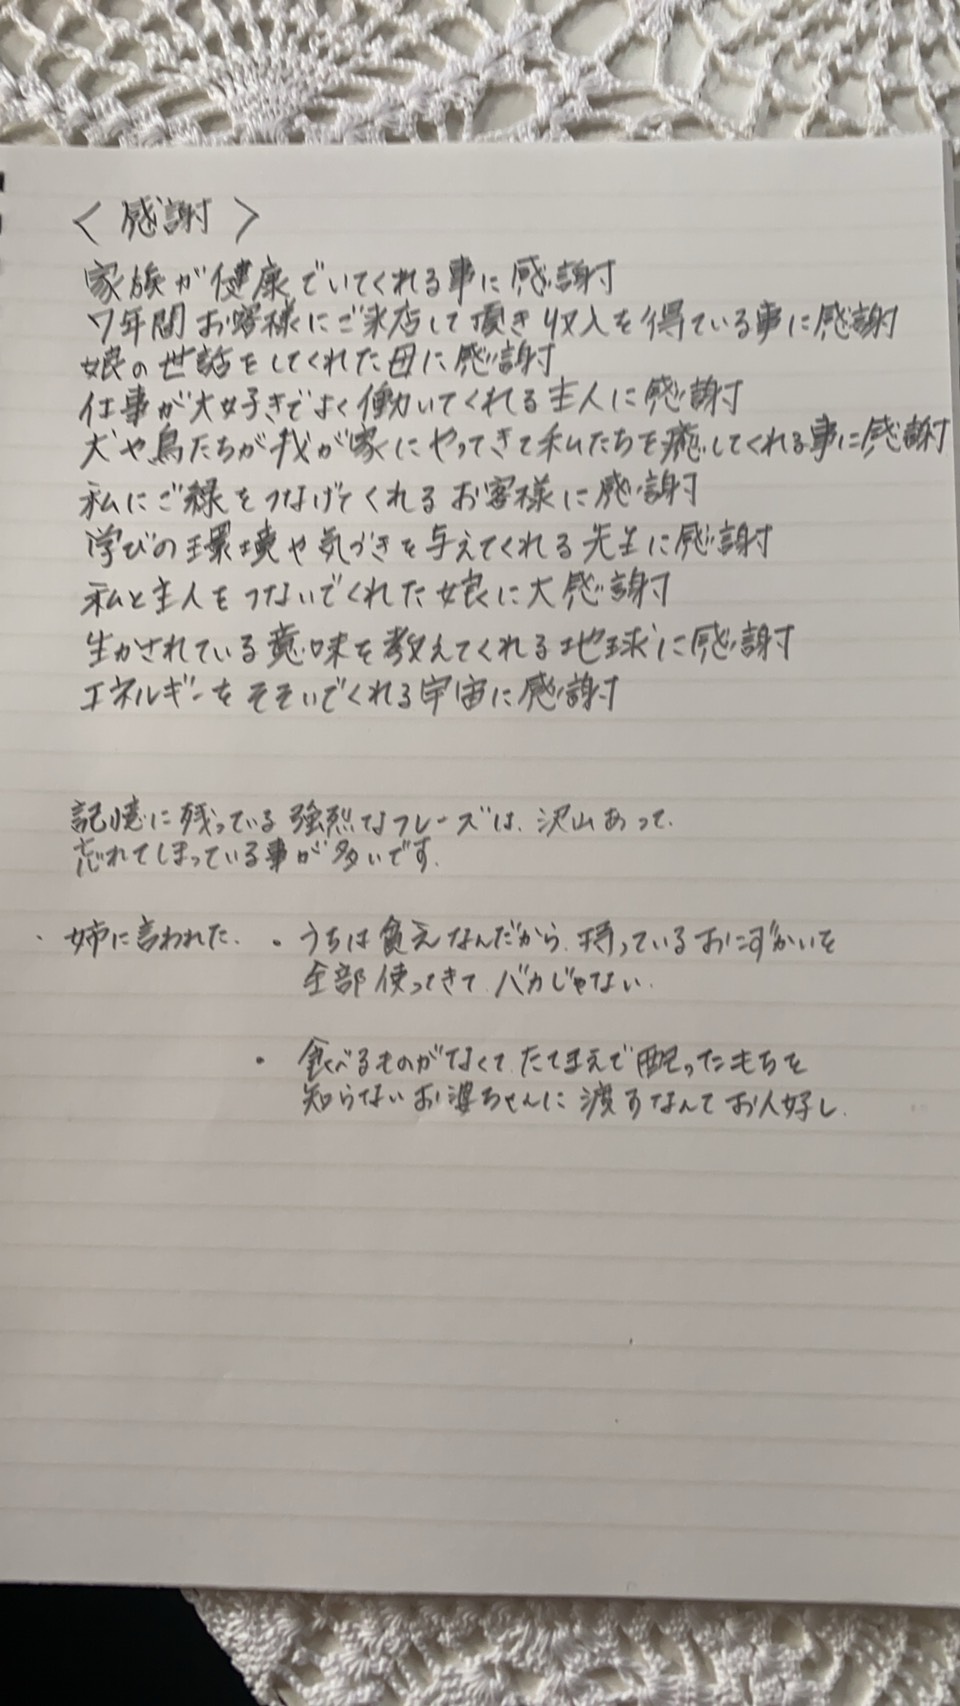 〈感謝〉
家族が健康でいてくれる事に感謝
7年間お客様にご来店して頂き収入を得ている事に感謝
娘の世話をしてくれた母に感謝
仕事が大好きでよく働いてくれる主人に感謝
犬や鳥たちが我が家にやってきて私たちを癒してくれる事に感謝
私にご縁をつなげてくれるお客様に感謝
学びの環境や気づきを与えてくれる先生に感謝
私と主人をつないでくれた娘に大感謝
生かされている意味を教えてくれる地球に感謝
エネルギーをそそいでくれる宇宙に感謝
記憶に残っている強烈なフレーズは、沢山あって、
忘れてしまっている事が多いです。
・姉に言われた、・うちは貧乏なんだから、持っているおこずかいを
全部使ってきて、バカじゃない。
・食べるものがなくて、たてまえで配ったもちを
知らないお婆ちゃんに渡すなんてお人好し。